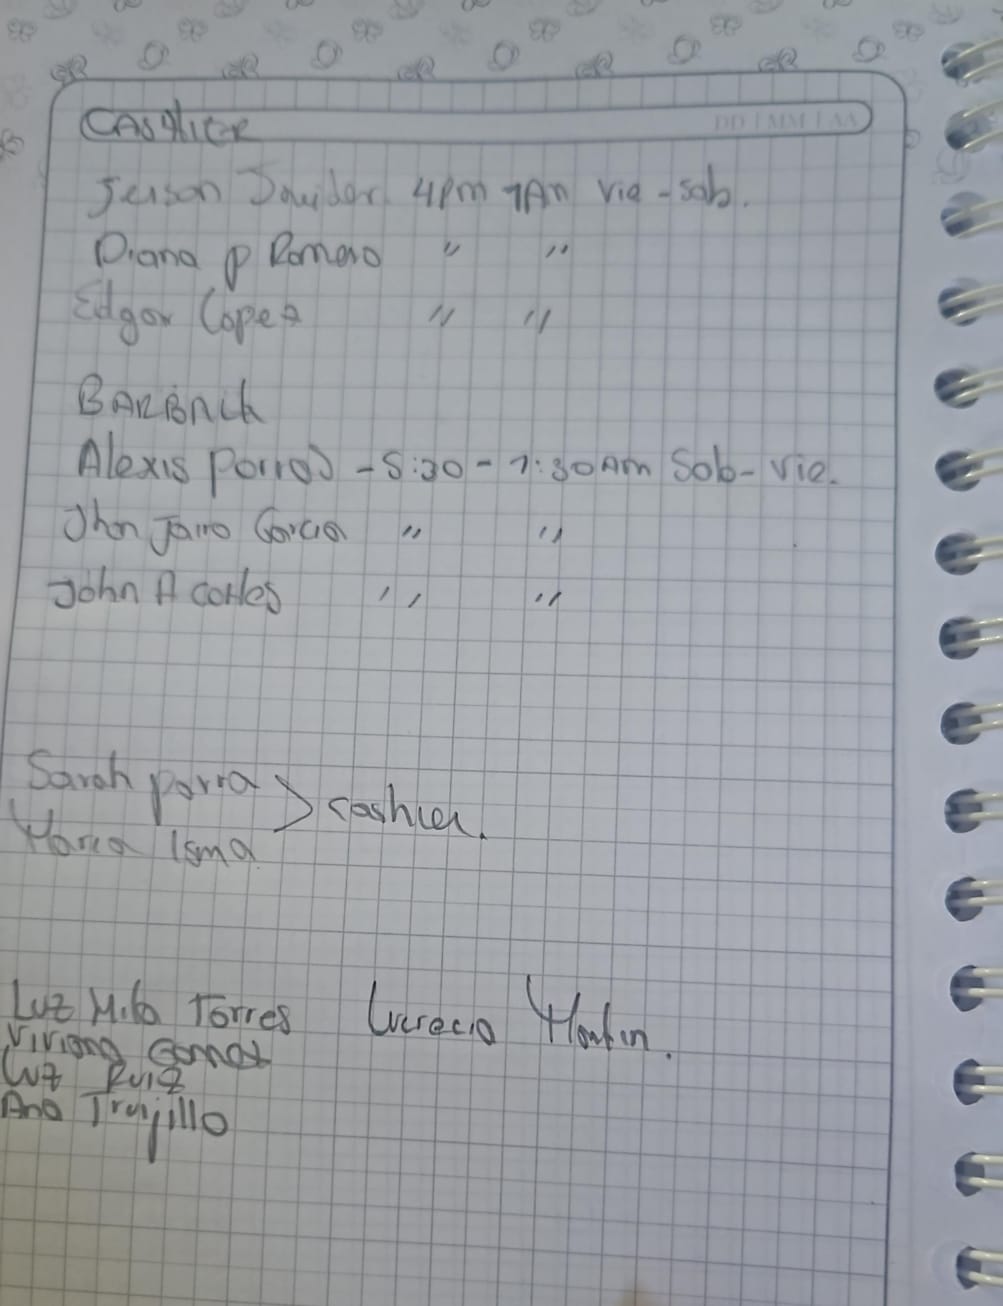 CASHIER
DD | MM | AA
Jeison 4pm 1AM Vie - Sab.
Diana p Romero " "
Edgar Lopez " "
BARBACK
Alexis Porras - 5:30 - 1:30 Am Sab - Vie.
Jhon Jairo Garcia " "
John A Cortes " "
Sarah parra > cashier.
Maria Isma
Luz Mila Torres Lucrecia
Viviana Gomez
Luz Ruiz
Ana Trujillo